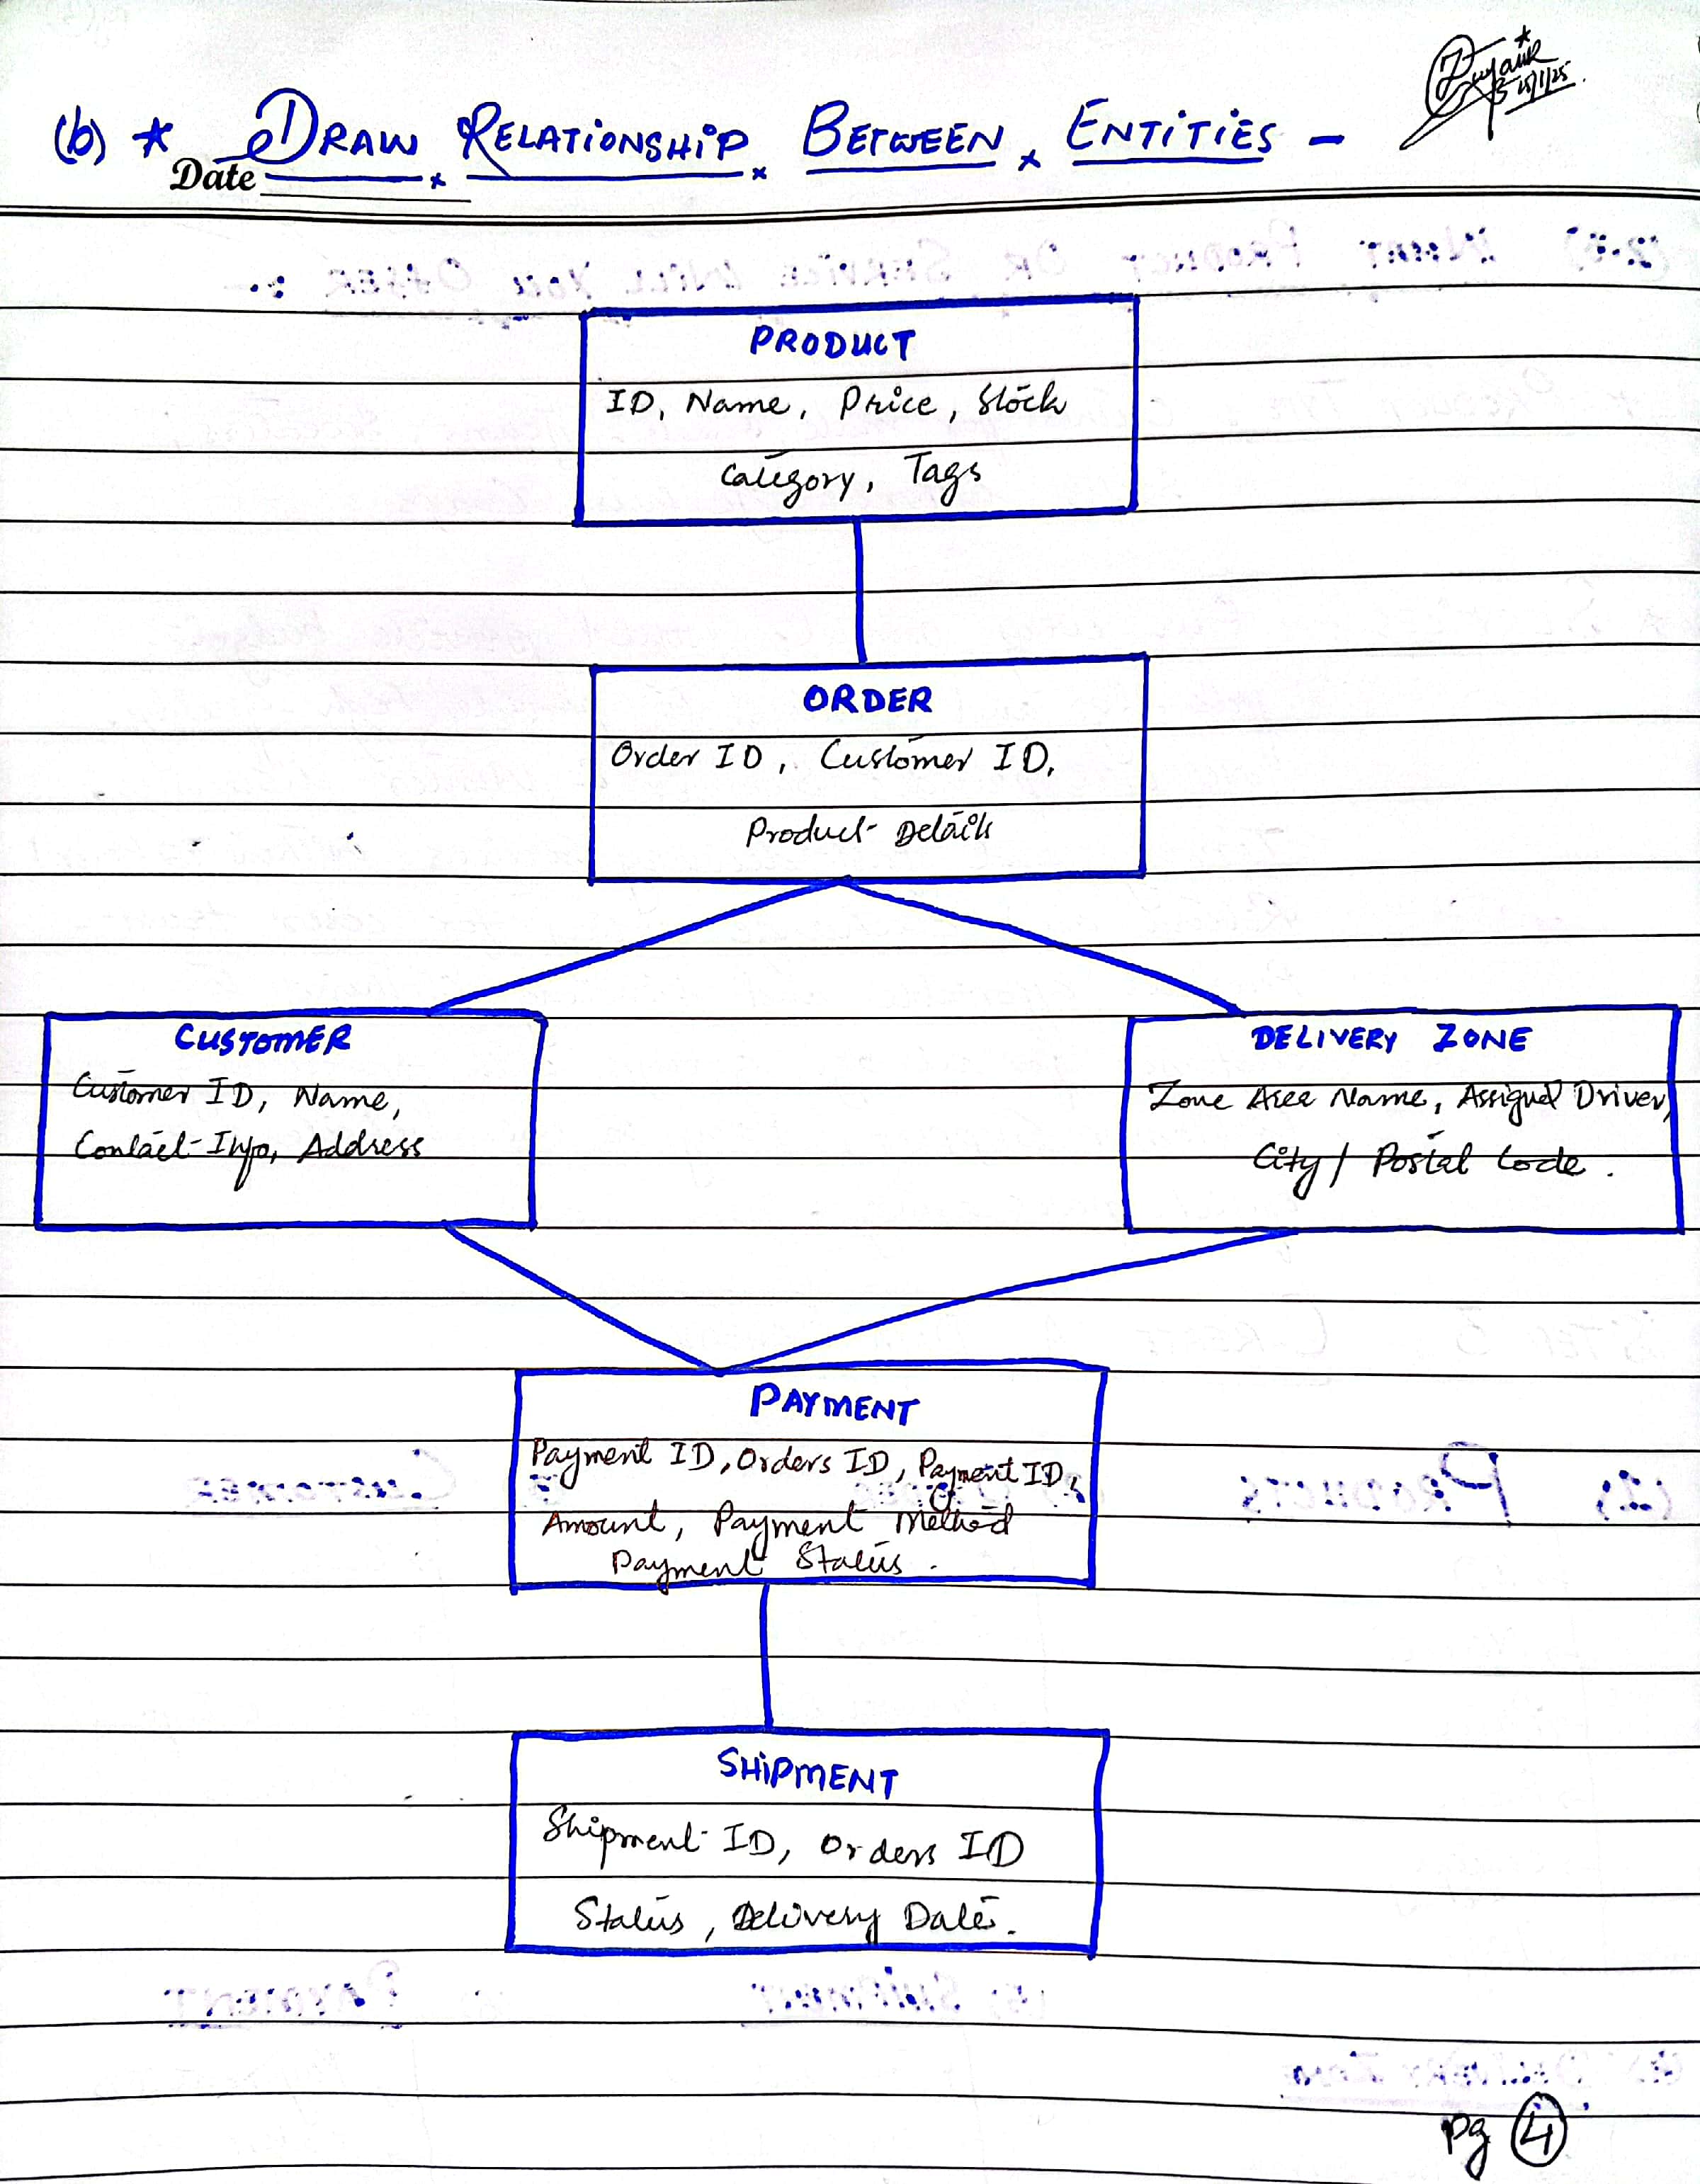 (b) * DRAW RELATIONSHIP BETWEEN ENTITIES -
Date
PRODUCT
ID, Name, Price, Stock
Category, Tags
ORDER
Order ID, Customer ID,
Product Details
CUSTOMER
Customer ID, Name,
Contact Info, Address
DELIVERY ZONE
Zone Area Name, Assigned Driver,
City / Postal Code.
PAYMENT
Payment ID, Orders ID, Payment ID,
Amount, Payment Method
Payment Status.
SHIPMENT
Shipment ID, Orders ID
Status, Delivery Date.
Pg 4